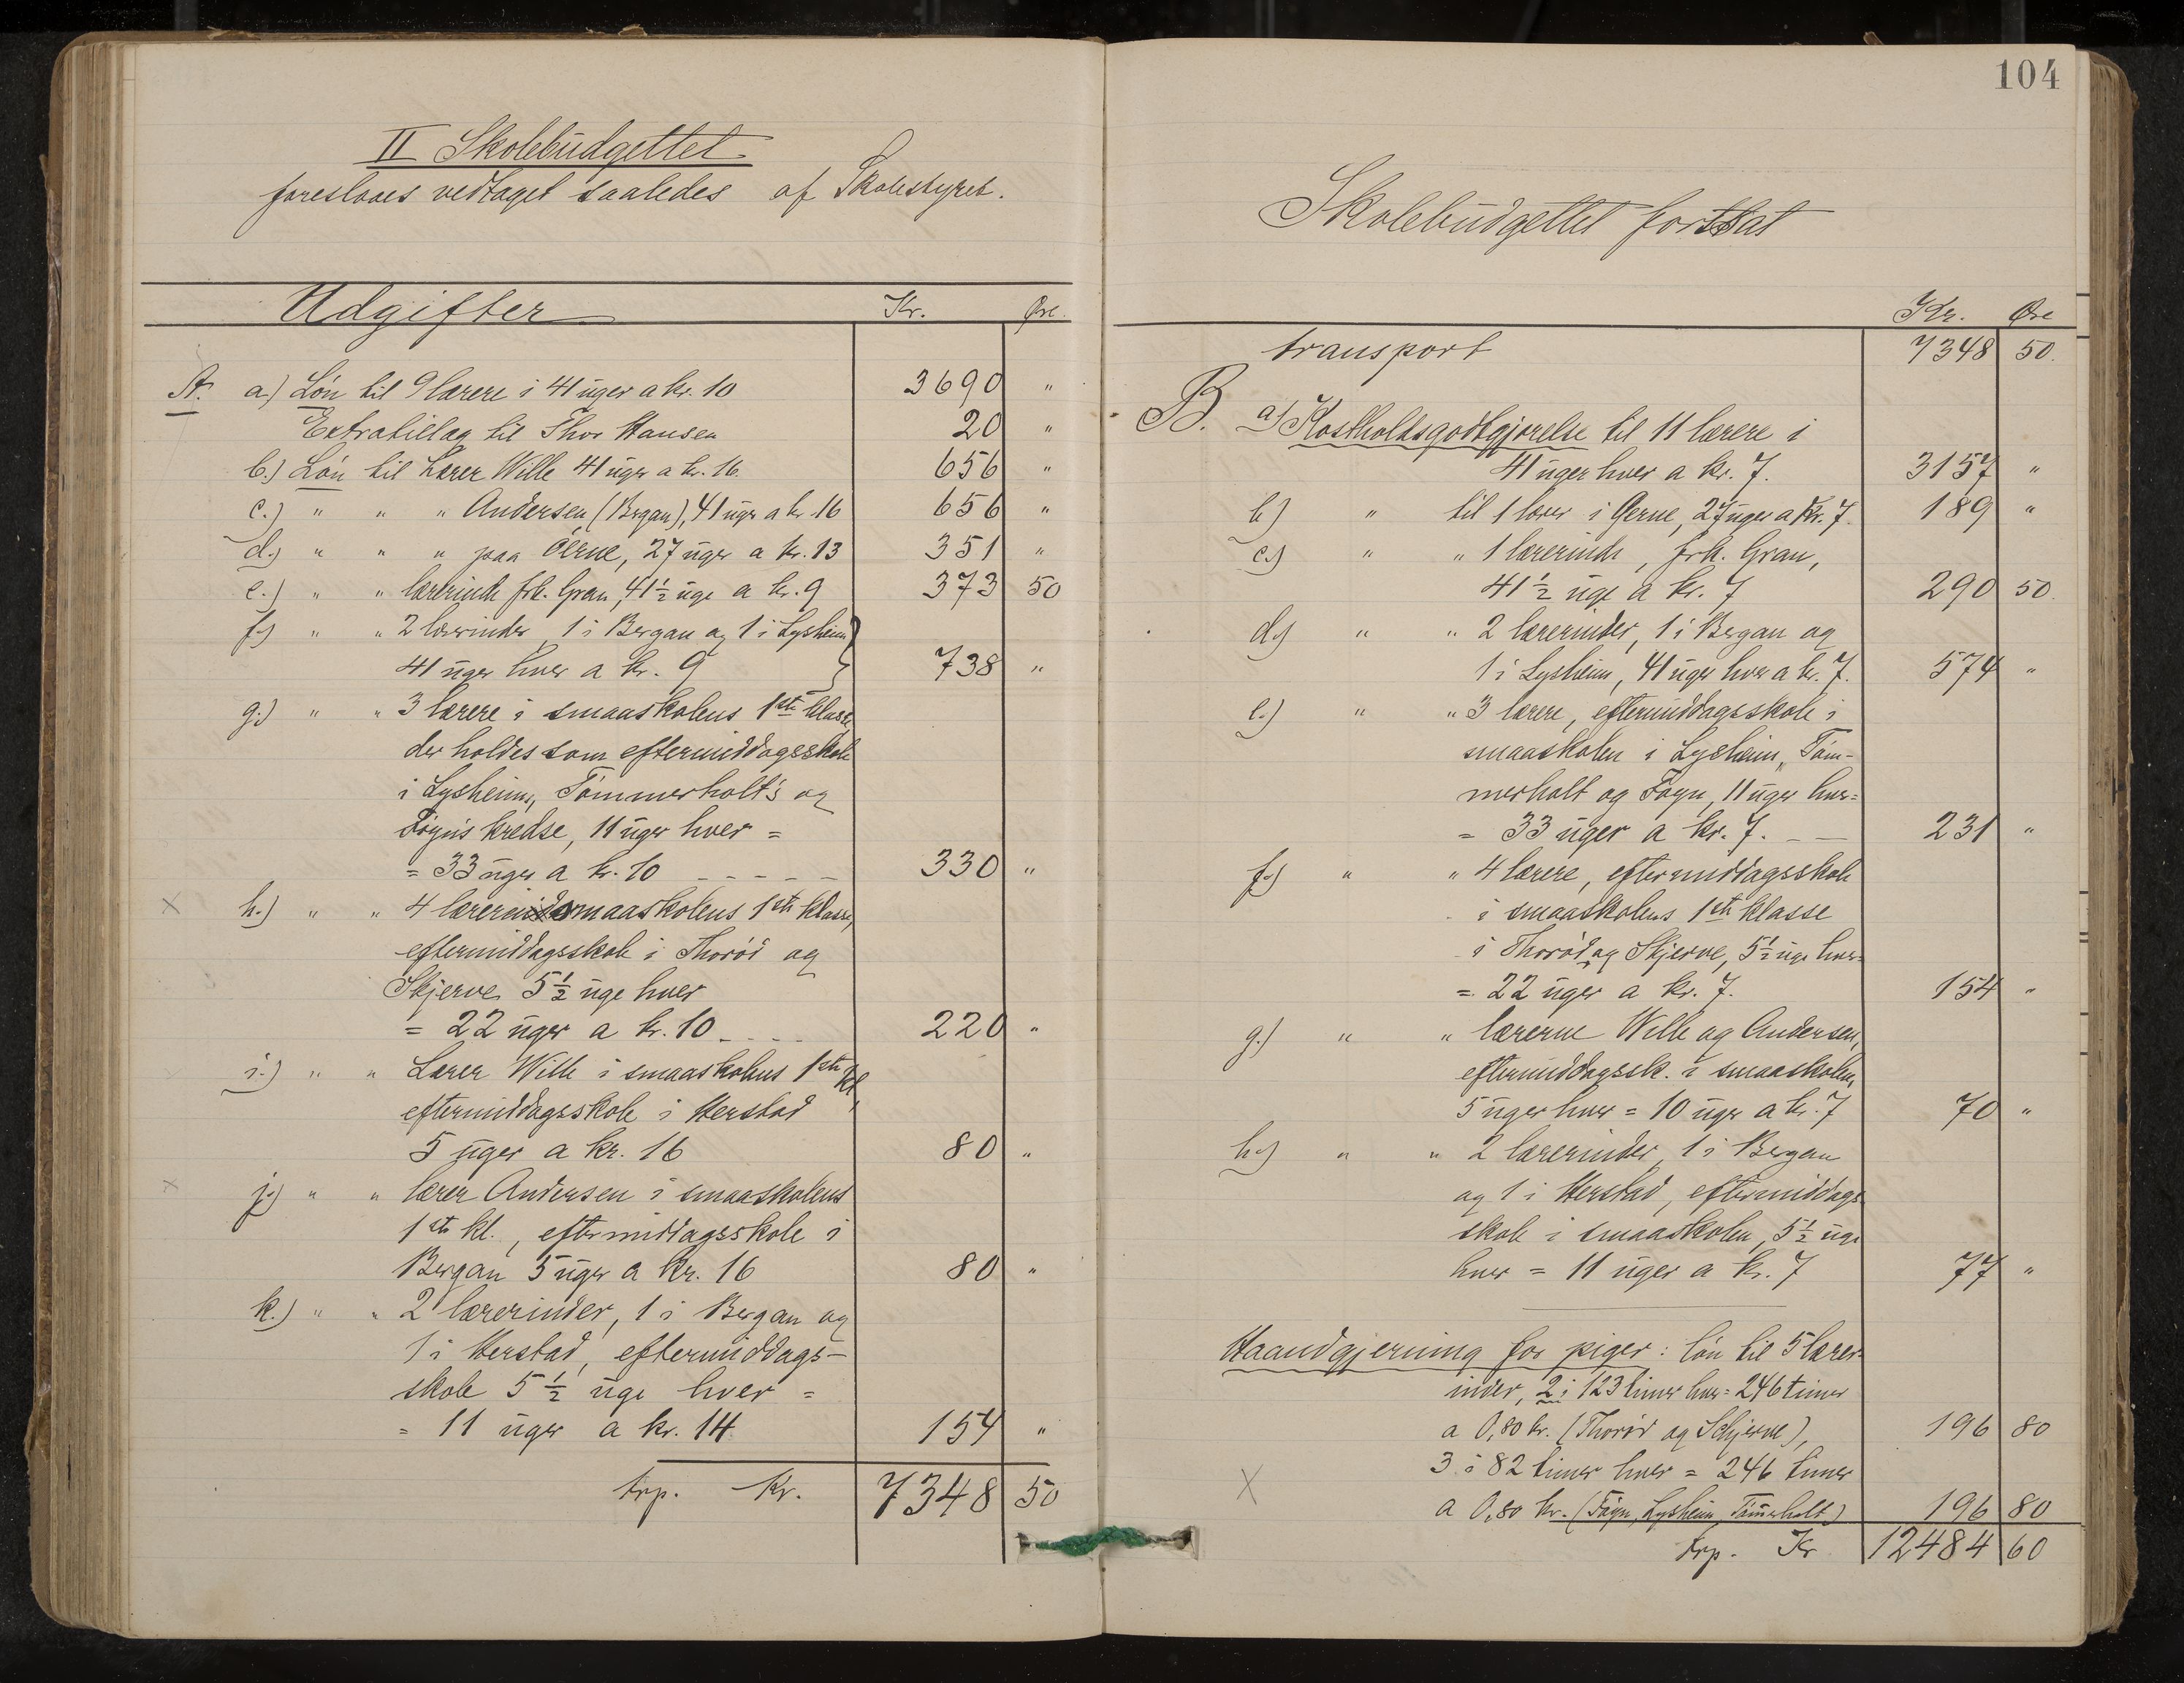 II Skolebudgettet
foreslaaes vedtaget saaledes af Skolestyret.
Udgifter Kr. Øre.
A. a) Løn til 9 lærere i 41 uger a kr. 10 3690 "
Extratillag til Thor Hansen 20 "
b.) Løn til Lærer Wille 41 uger a kr. 16. 656 "
c.) " " " Andersen (Bergan), 41 uger a kr. 16 656 "
d.) " " " paa Øerne, 27 uger a kr. 13 351 "
e.) " " lærerinde frk. Gran, 41 1/2 uge a kr. 9 373 50
f.) " " 2 lærerinder, 1 i Bergan og 1 i Lysheim
41 uger hver a kr. 9 738 "
g.) " " 3 lærere i smaaskolens 1ste klasse
der holdes som eftermiddagsskole
i Lysheims, Tømmerholt's og
Føyns kredse, 11 uger hver =
= 33 uger a kr. 10 - - - - - 330 "
x h.) " " 4 lærere i smaaskolens 1ste klasse,
eftermiddagsskole i Thorød og
Skjerve 5 1/2 uge hver
= 22 uger a kr. 10 - - - 220 "
i.) " " Lærer Wille i smaaskolens 1ste kl,
eftermiddagsskole i Herstad
5 uger a kr. 16 80 "
x j.) " " lærer Andersen i smaaskolens
1ste kl., eftermiddagsskole i
Bergan 5 uger a kr. 16 80 "
k.) " " 2 lærerinder, 1 i Bergan og
1 i Herstad, eftermiddags-
skole 5 1/2 uge hver =
= 11 uger a kr. 14 154 "
trp. Kr. 7348 50
104
Skolebudgettet fortsat
Kr. Øre
transport 7348 50.
B. a) Kostholdsgodtgjørelse til 11 lærere i
41 uger hver a kr. 7. 3157 "
b) " til 1 lærer i Øerne, 27 uger a Kr. 7. 189 "
c.) " " 1 lærerinde, frk. Gran,
41 1/2 uge a kr. 7 290 50.
d.) " " 2 lærerinder, 1 i Bergan og
1 i Lysheim, 41 uger hver a kr. 7. 574 "
e.) " " 3 lærere, eftermiddagsskole i
smaaskolen i Lysheim, Tøm-
merholt og Føyn, 11 uger hver =
= 33 uger a kr. 7. - - 231 "
f.) " " 4 lærere, eftermiddagsskole
i smaaskolens 1ste klasse
i Thorød og Skjerve, 5 1/2 uge hver =
= 22 uger a kr. 7. 154 "
g.) " " lærerne Wille og Andersen,
eftermiddagssk. i smaaskolen,
5 uger hver = 10 uger a kr. 7 70 "
h.) " " 2 lærerinder, 1 i Bergan
og 1 i Herstad, eftermiddags
skole i smaaskolen, 5 1/2 uge
hver = 11 uger a kr. 7 77 "
Haandgjerning for piger: løn til 5 lærer-
inder, 2 i 123 timer hver = 246 timer
a 0,80 kr. (Thorød og Schjerve), 196 80
x 3 i 82 timer hver = 246 timer
a 0,80 kr. (Føyn, Lysheim, Tømerholt) 196 80
trp. Kr 12484 60